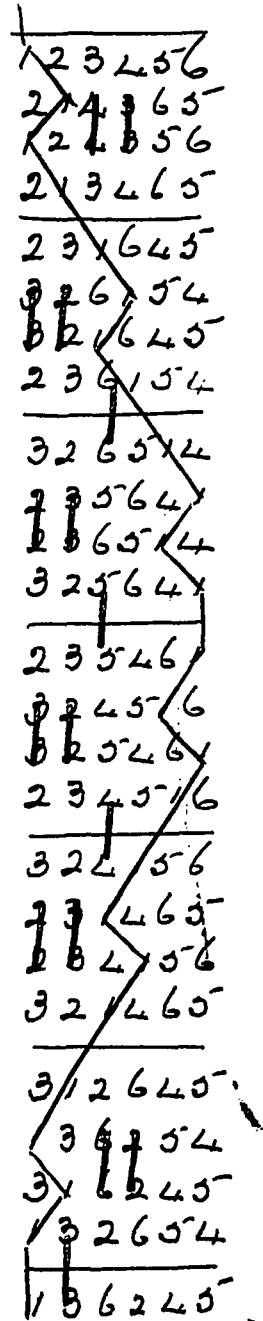 1 2 3 4 5 6
2 1 4 3 6 5
1 2 4 3 5 6
2 1 3 4 6 5
2 3 1 6 4 5
3 2 6 1 5 4
3 2 1 6 4 5
2 3 6 1 5 4
3 2 6 5 1 4
2 3 5 6 4 1
2 3 6 5 1 4
3 2 5 6 4 1
2 3 5 4 6 1
3 2 4 5 1 6
3 2 5 4 6 1
2 3 4 5 1 6
3 2 4 1 5 6
2 3 1 4 6 5
2 3 4 1 5 6
3 2 1 4 6 5
3 1 2 6 4 5
1 3 6 2 5 4
3 1 6 2 4 5
1 3 2 6 5 4
1 3 6 2 4 5